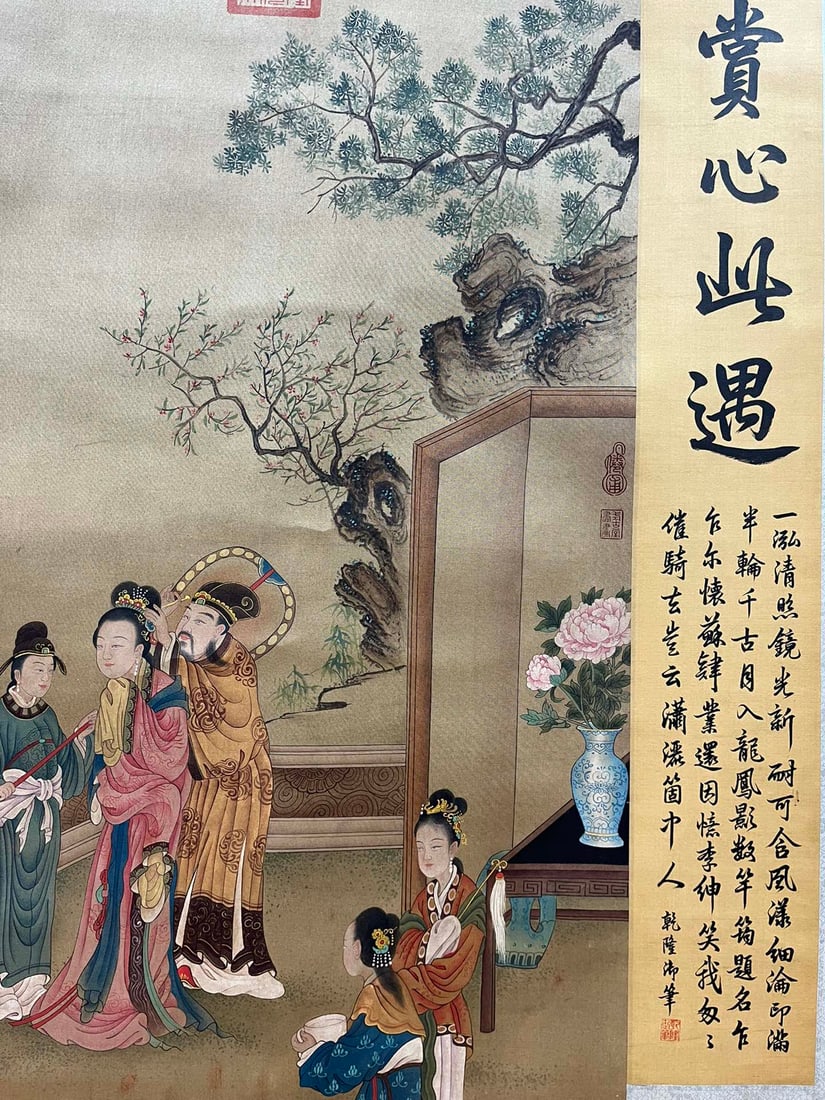 賞心此遇
一泓清照鏡光新耐可含風漾細淪印滿
半輪千古月入龍鳳影數竿筠題名乍
乍尔懷蘇肄業還因憶李紳笑我匆〻
催騎去豈云瀟灑箇中人
乾隆御筆